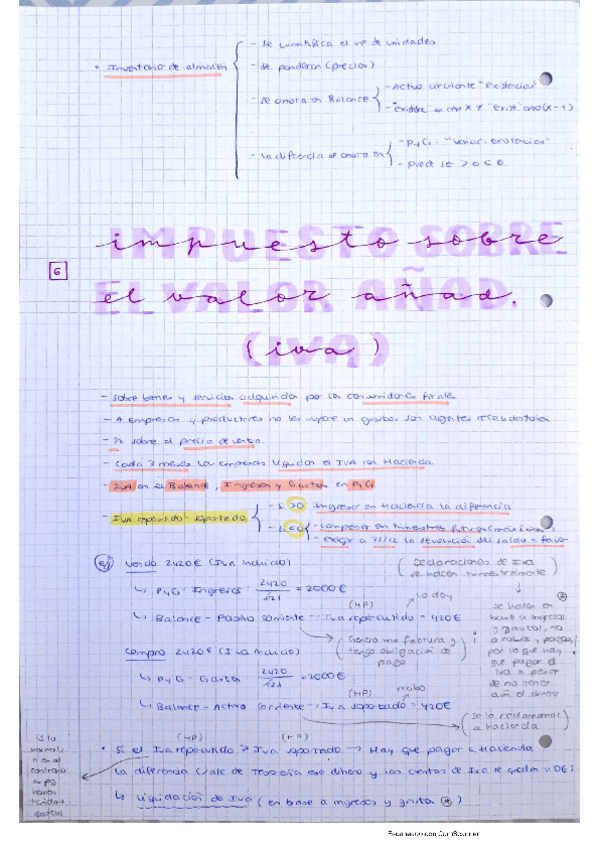 - Se cuantifica el nº de unidades
• Inventario de almacén
- Se ponderan (precios)
- Se anota en Balance
- Activo circulante "Existencias"
- La diferencia se anota en
- PyG
6
impuesto sobre
IMPUESTO SOBRE
el valor añad.
EL VALOR AÑAD.
(iva)
(IVA)
- Sobre bienes y servicios adquiridos por los consumidores finales
- A empresas y productores no les supone un gasto, son agentes recaudatorios
- % sobre el precio de venta.
- Cada 3 meses las empresas liquidan el IVA con Hacienda.
- IVA en el Balance, Ingresos y Gastos en PyG
- Iva repercutido - soportado
- Si >0 ingresar en Hacienda la diferencia
- Si <0 - compensar en trimestres futuros
- Exigir a 31/12 la devolución del saldo a favor
ej Vendo 2420€ (Iva incluido)
(Declaraciones de Iva se hacen trimestralmente)
↳ PyG - Ingresos 2420/1'21 = 2000€
(HP) lo doy
↳ Balance - Pasivo corriente - Iva repercutido = 420€
(Genero una factura y tengo obligación de pago)
se hacen en
base a ingresos
y gastos, no
a cobros y pagos,
por lo que hay
que pagar el
Iva a pesar
de no tener
aún el dinero
Compro 2420€ (Iva incluido)
↳ PyG - Gasto 2420/1'21 = 2000€
(HP)
↳ Balance - Activo Corriente - Iva soportado = 420€
(Se lo reclamaré a hacienda)
(HP) (HP)
• Si el Iva repercutido > Iva soportado → Hay que pagar a Hacienda
la diferencia (sale de Tesorería ese dinero y las cuentas de Iva se quedan a 0€)
↳ Liquidación de Iva (en base a ingresos y gastos)
es lo
normal,
si es al
contrario
gastos
Escaneado con CamScanner